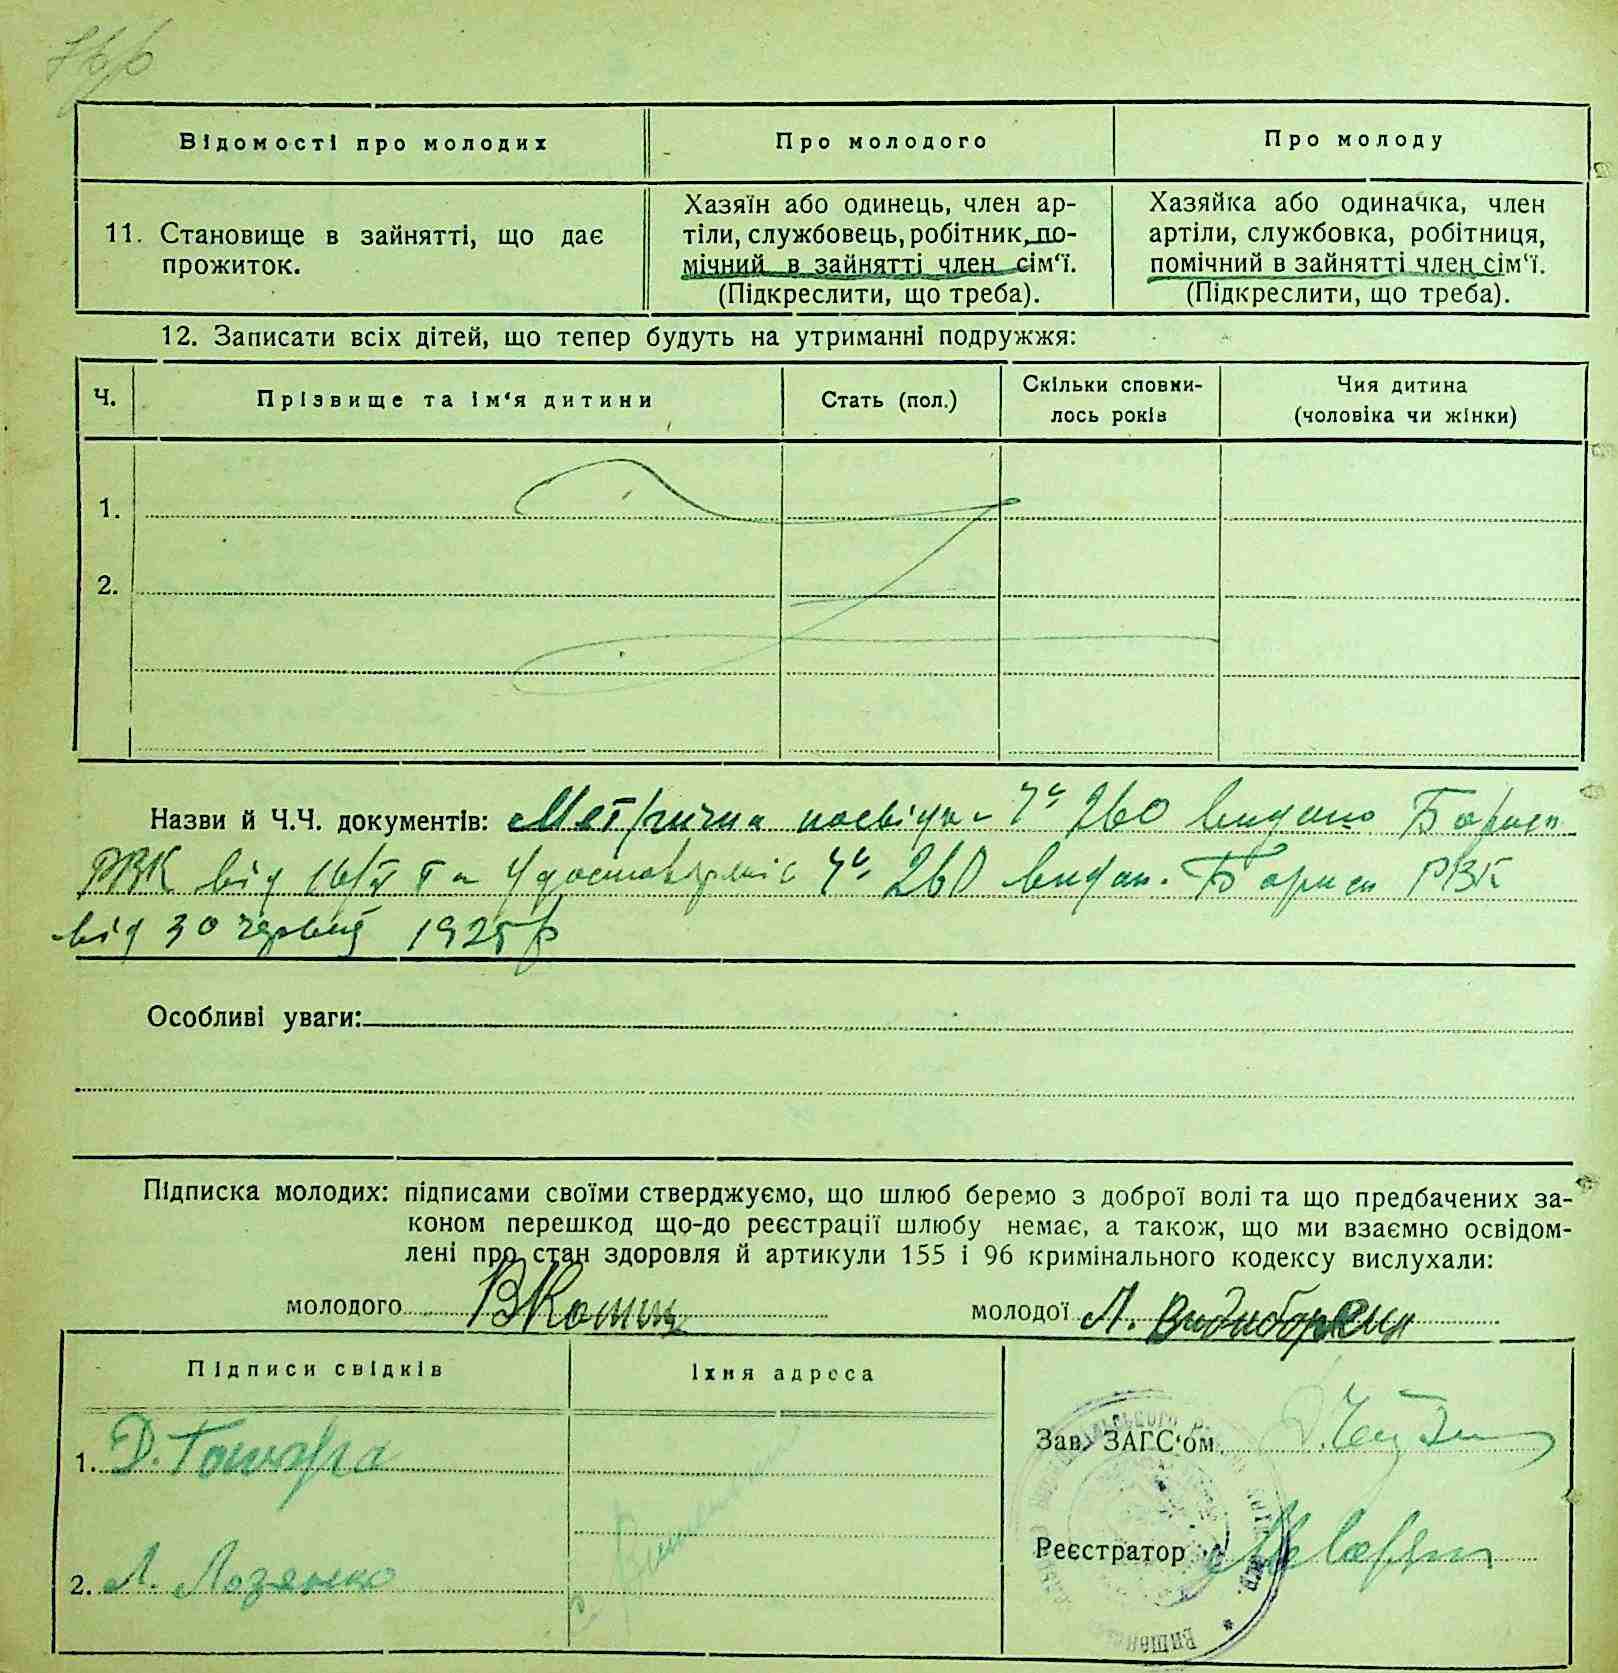 Відомості про молодих
Про молодого
Про молоду
11. Становище в зайнятті, що дає
прожиток.
Хазяїн або одинець, член ар-
тіли, службовець, робітник, по-
мічний в зайнятті член сім'ї.
(Підкреслити, що треба).
Хазяйка або одиначка, член
артіли, службовка, робітниця,
помічний в зайнятті член сім'ї.
(Підкреслити, що треба).
12. Записати всіх дітей, що тепер будуть на утриманні подружжя:
Ч.
Прізвище та ім'я дитини
Стать (пол.)
Скільки сповни-
лось років
Чия дитина
(чоловіка чи жінки)
1.
2.
Назви й Ч.Ч. документів: Метрична 260 видано
РВК від та 260 видан. РВК
від 30 червня 1925 р
Особливі уваги:
Підписка молодих: підписами своїми стверджуємо, що шлюб беремо з доброї волі та що предбачених за-
коном перешкод що-до реєстрації шлюбу немає, а також, що ми взаємно освідом-
лені про стан здоровля й артикули 155 і 96 кримінального кодексу вислухали:
молодого
молодої Л.
Підписи свідків
Їхня адреса
1. Д.
2. Л. Лозенко
Зав. ЗАГС'ом
Реєстратор